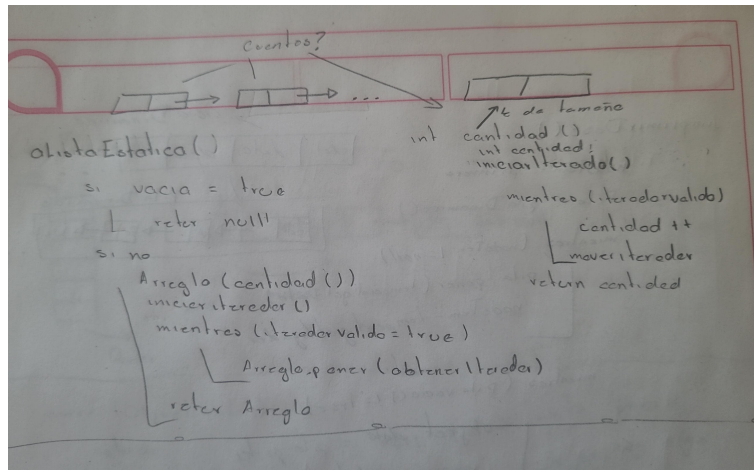 cuantos?
...
aListaEstatica()
si vacia = true
retur null
si no
Arreglo (cantidad ())
iniciariterador ()
mientras (iteradorvalido = true)
Arreglo.poner (obtenerIterador)
retur Arreglo
t de tamaño
int cantidad ()
int cantidad;
iniciarIterado()
mientras (iteradorvalido)
cantidad ++
moveriterador
return cantidad